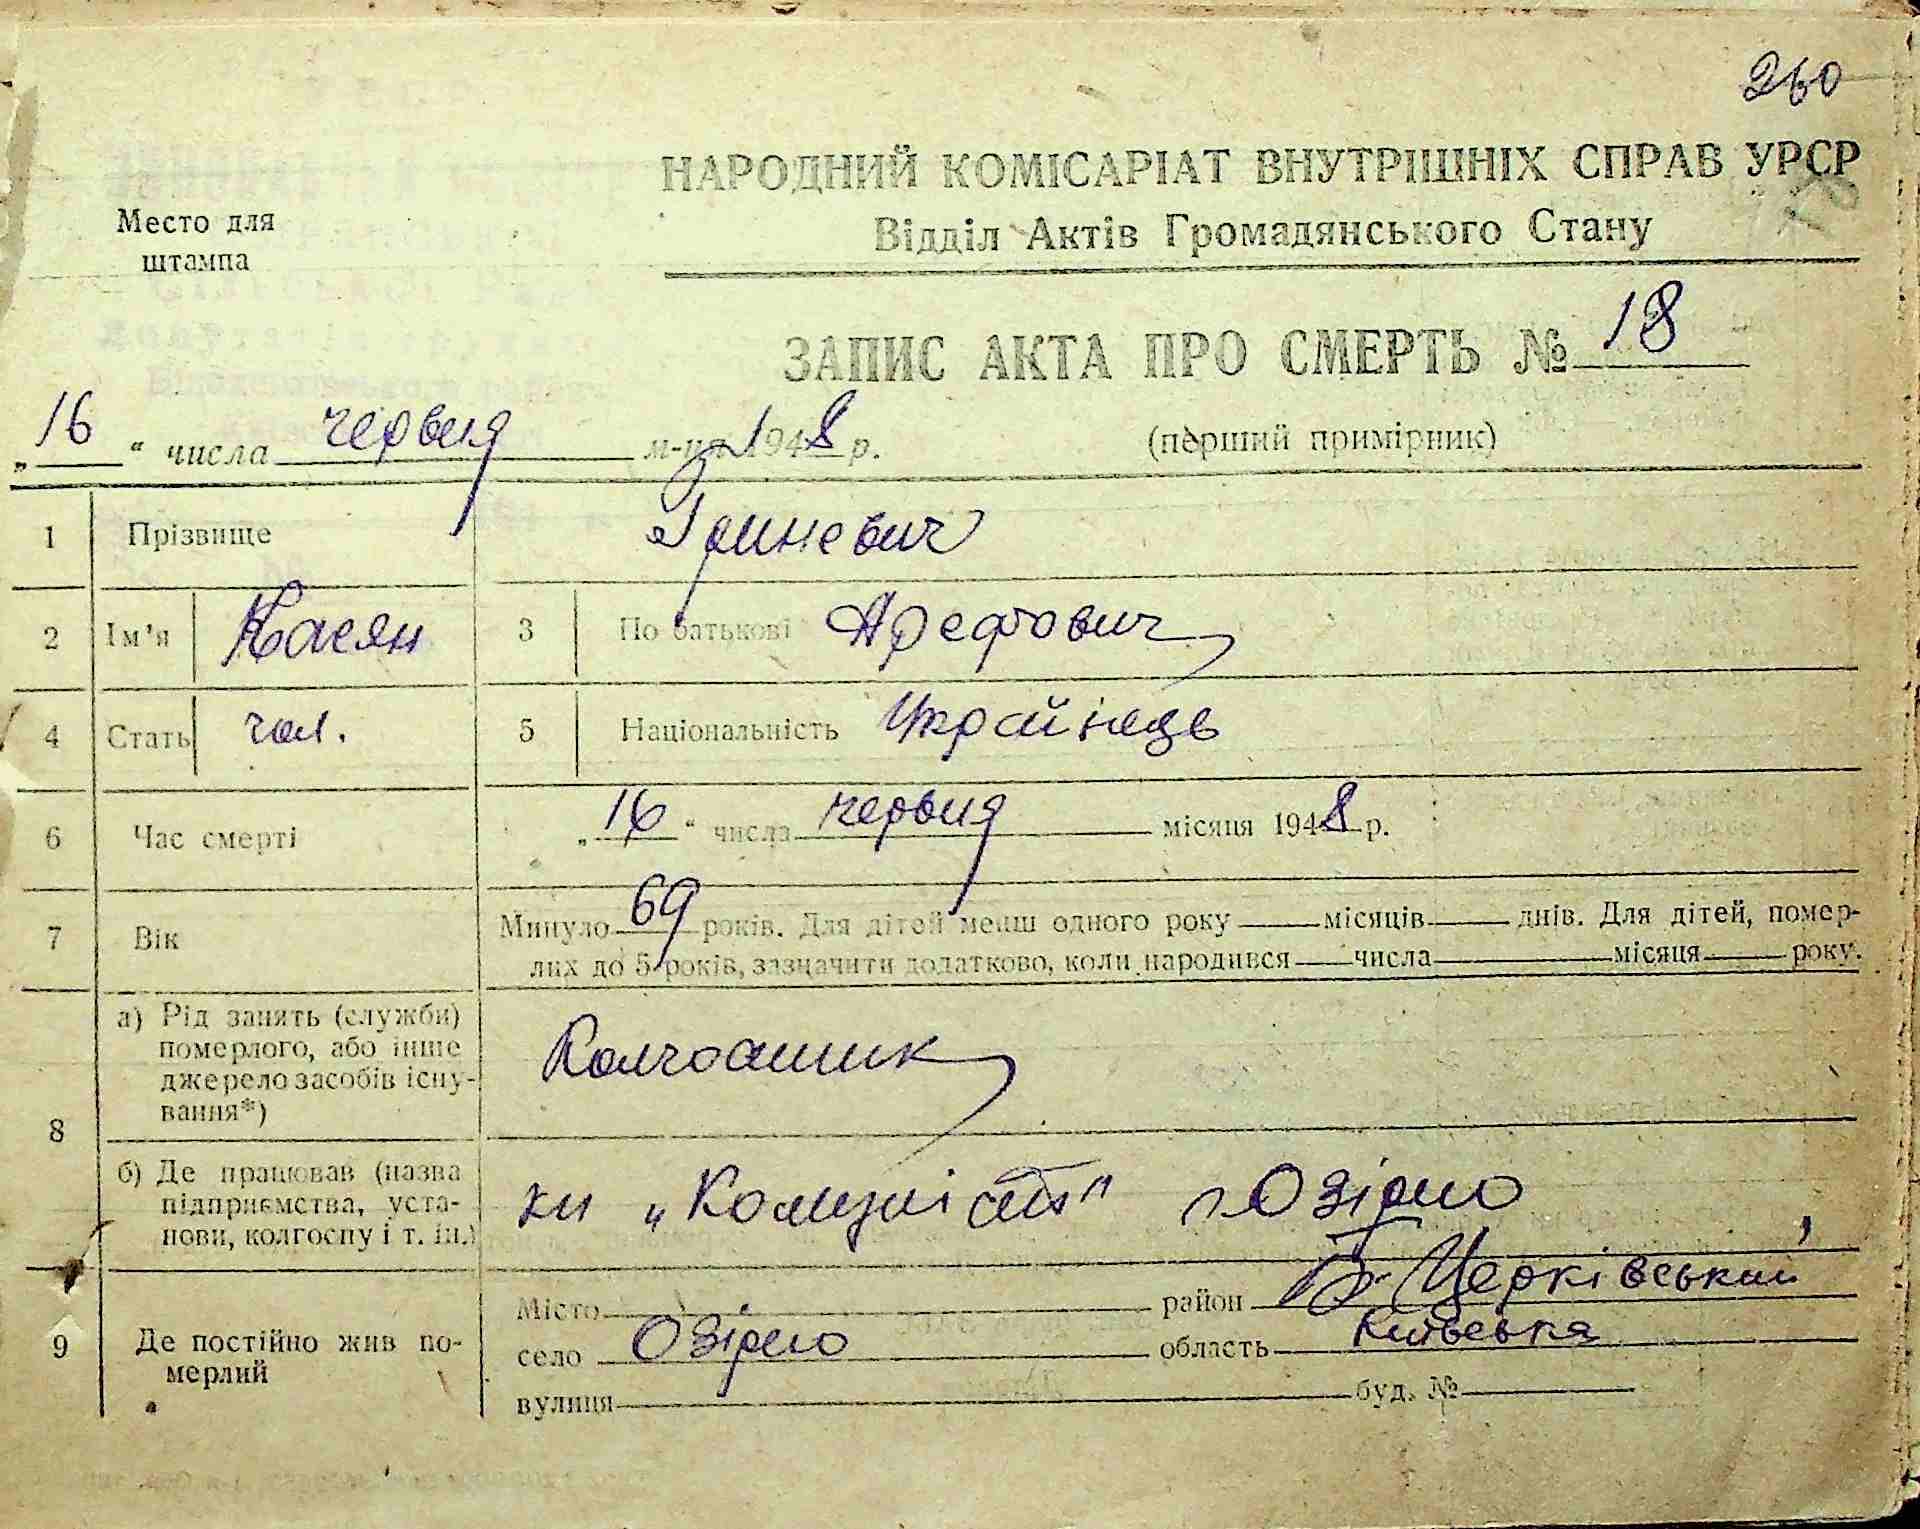 260
НАРОДНИЙ КОМІСАРІАТ ВНУТРІШНІХ СПРАВ УРСР
Место для
штампа
Відділ Актів Громадянського Стану
ЗАПИС АКТА ПРО СМЕРТЬ № 18
„16“ числа червня м-ця 1948 р.
(перший примірник)
1 Прізвище Гриневич
2 Ім'я Касян 3 По батькові Арефтович
4 Стать чол. 5 Національність Українець
6 Час смерті „16“ числа червня місяця 1948 р.
7 Вік Минуло 69 років. Для дітей менш одного року місяців днів. Для дітей, помер-
лих до 5 років, зазначити додатково, коли народився числа місяця року.
8 а) Рід занять (служби)
померлого, або інше
джерело засобів існу-
вання*)
Колгоспник
б) Де працював (назва
підприємства, уста-
нови, колгоспу і т. ін.)
„Комуніст" Озірно
9 Де постійно жив по-
мерлий
Місто район Б-Церківський
село Озірно область Київська
вулиця буд. №